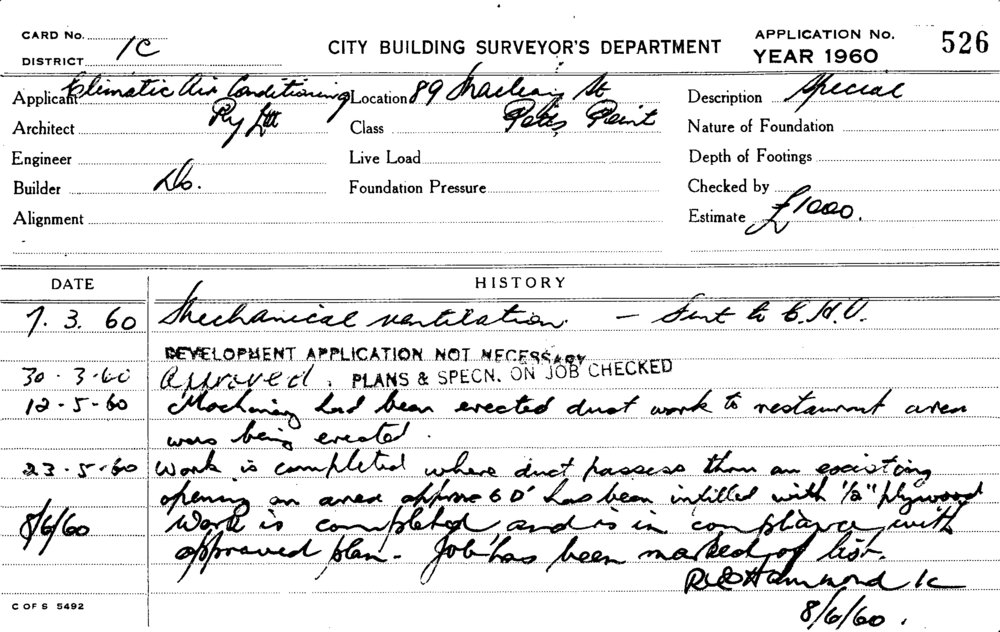 CARD No.
DISTRICT 1C
CITY BUILDING SURVEYOR'S DEPARTMENT
APPLICATION No. 526
YEAR 1960
Applicant Climatic Air Conditioning Pty Ltd
Location 89 Macleay St Potts Point
Description Special
Architect
Class
Nature of Foundation
Engineer
Live Load
Depth of Footings
Builder Do.
Foundation Pressure
Checked by
Alignment
Estimate £1000.
DATE HISTORY
7. 3. 60 Mechanical ventilation. – Sent to C.H.O.
DEVELOPMENT APPLICATION NOT NECESSARY
30-3-60 Approved. PLANS & SPECN. ON JOB CHECKED
12-5-60 had been erected duct work to restaurant area
was being erected.
23-5-60 Work is completed where duct passess thru an existing
opening an area approx 6 D' has been infilled with 1/2" plywood
8/6/60 Work is completed and is in compliance with
approved plan - Job has been marked of list.
Hammond 1C
8/6/60.
C OF S 5492